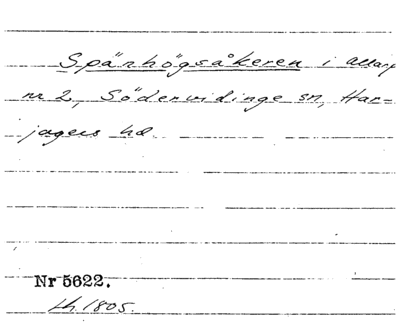 Spänhögsåkeren i Allarp
nr 2, Södervidinge sn, Har-
jagers hd
Nr 5622.
Lh. 1805.